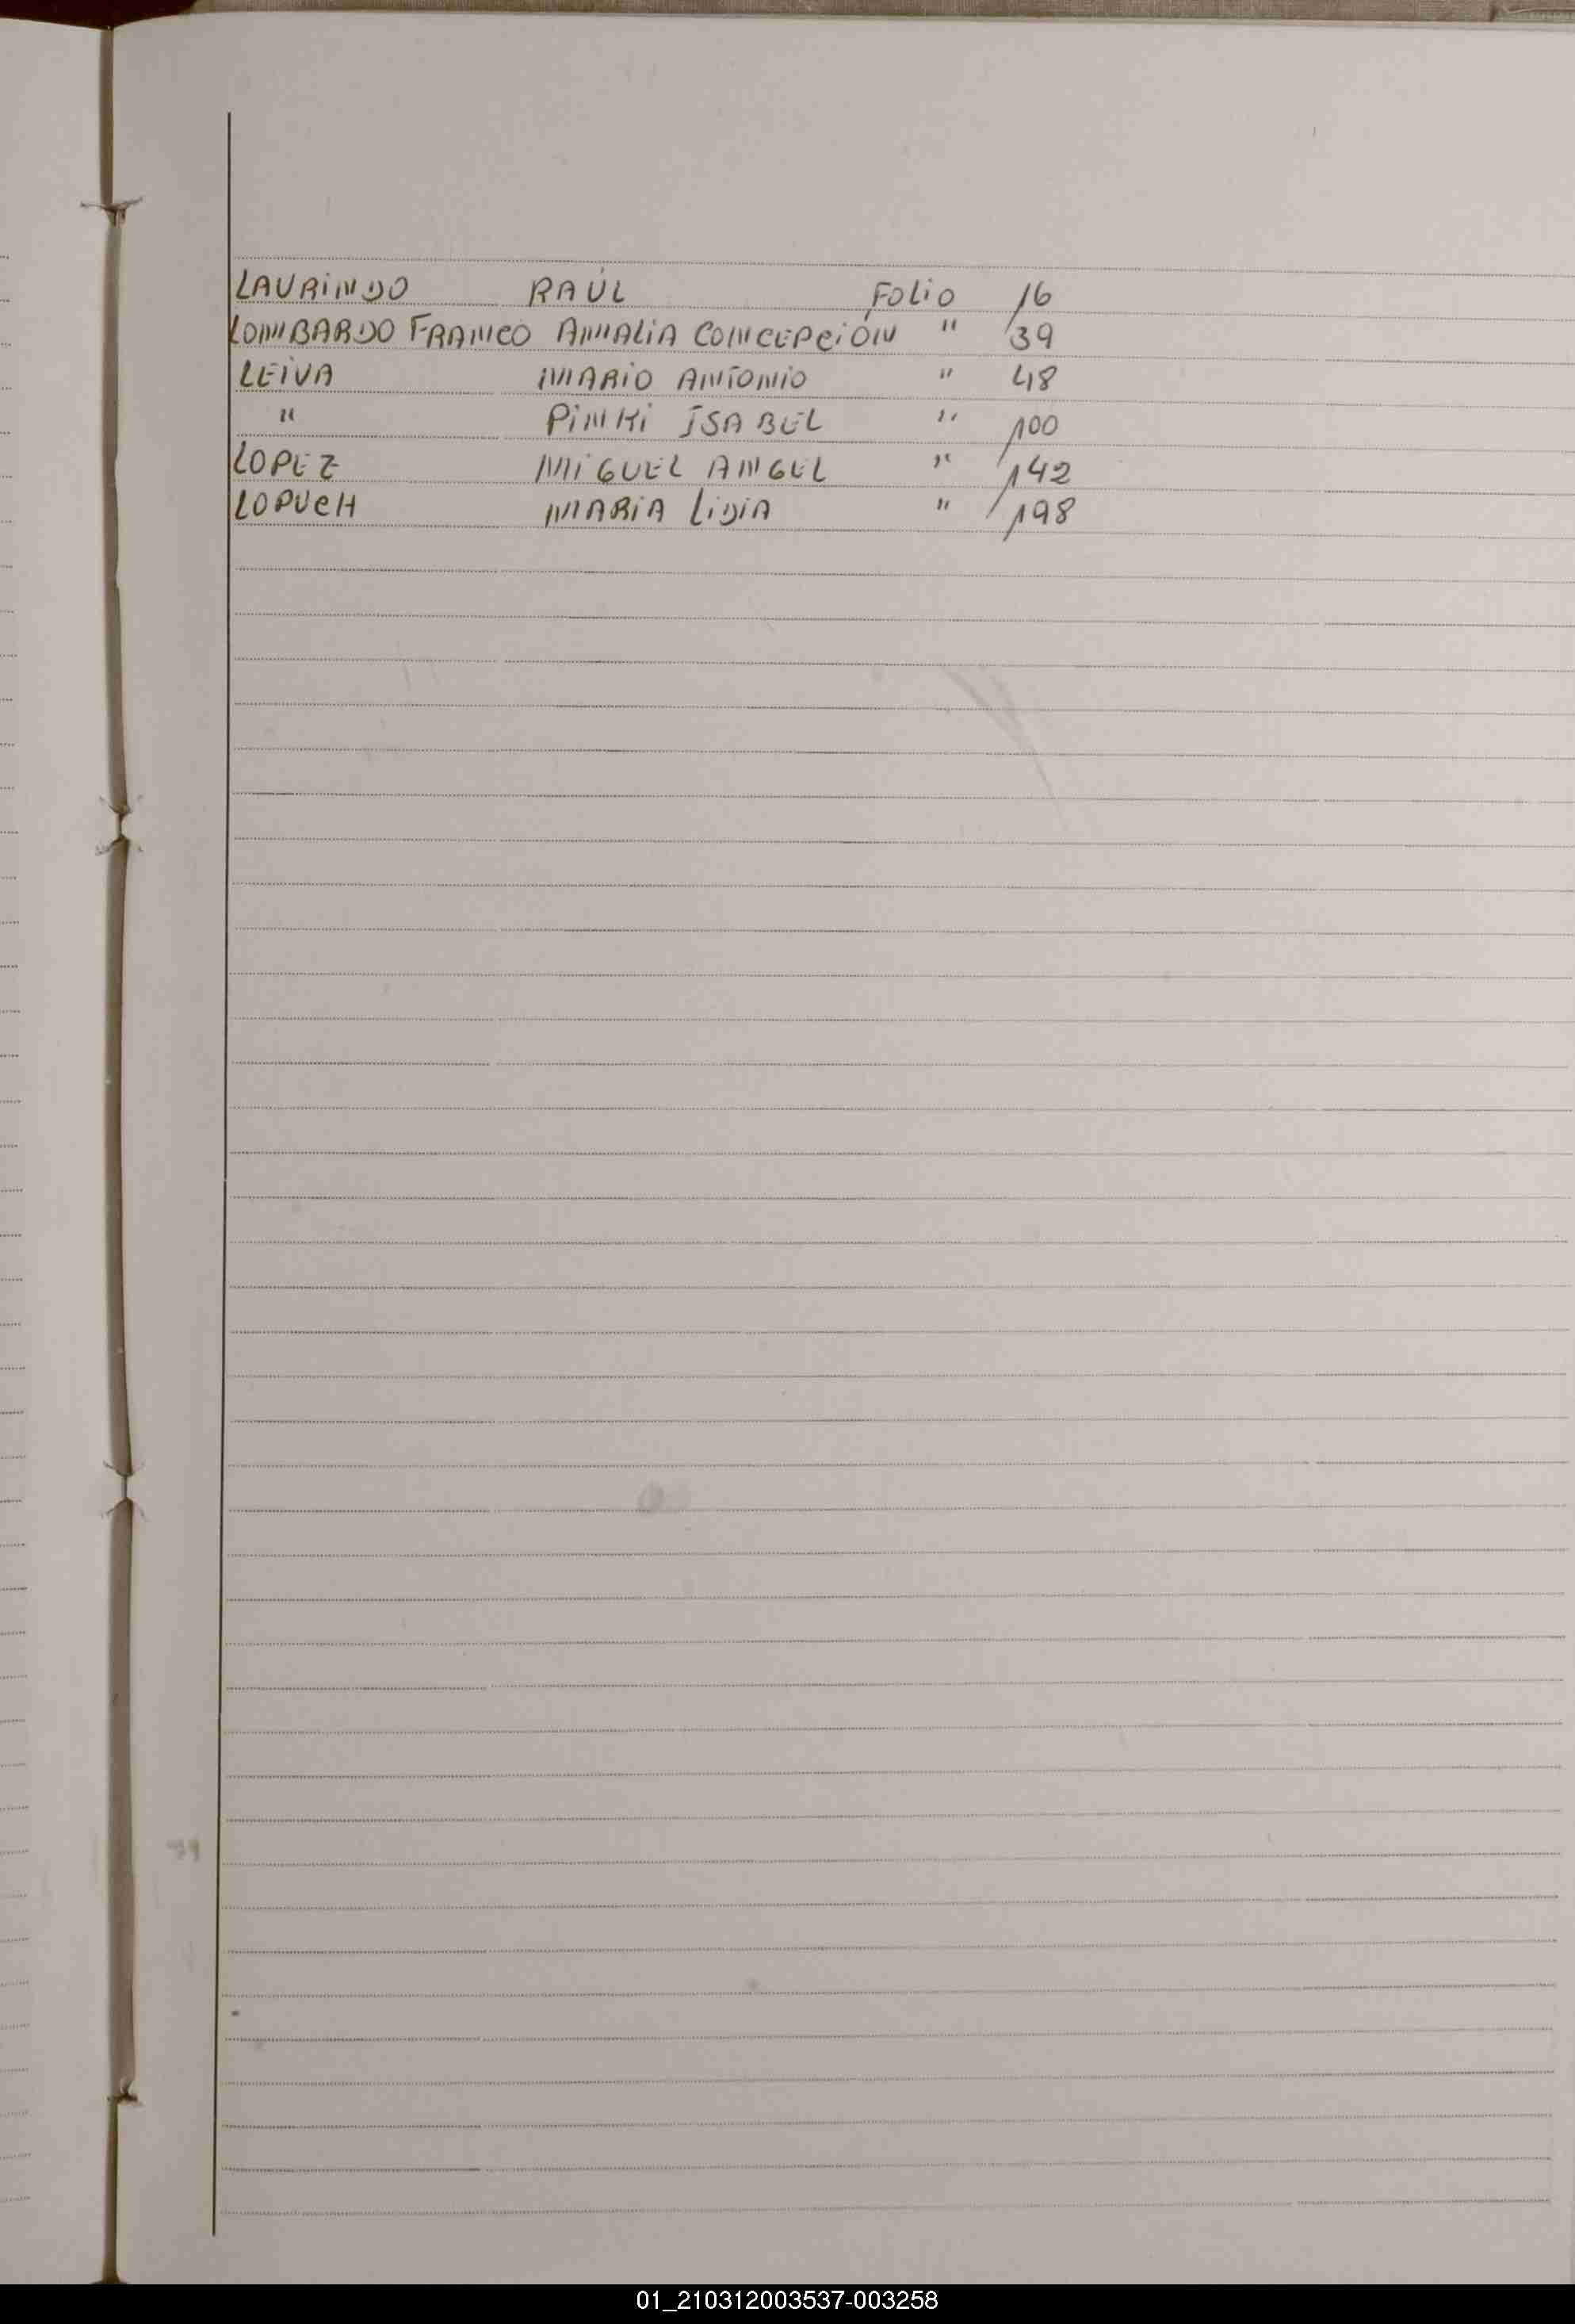 LAURINDO RAÚL FOLIO 16
LOMBARDO FRANCO AMALIA CONCEPCIÓN " 39
LEIVA MARIO ANTONIO " 48
" PINKI ISABEL " 100
LOPEZ MIGUEL ANGEL " 142
LOPUCH MARIA LIDIA " 198
01_210312003537-003258